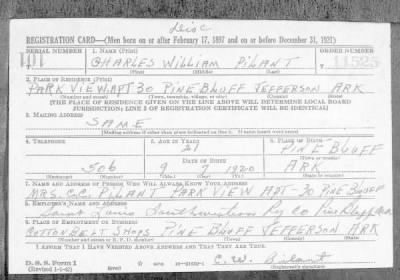 Disc
REGISTRATION CARD—(Men born on or after February 17, 1897 and on or before December 31, 1921)
SERIAL NUMBER 1. NAME (Print) ORDER NUMBER
101 CHARLES WILLIAM PILANT 11525
(First) (Middle) (Last)
2. PLACE OF RESIDENCE (Print)
PARK VIEW APT 30 PINE BLUFF JEFFERSON ARK
(Number and street) (Town, township, village, or city) (County) (State)
[THE PLACE OF RESIDENCE GIVEN ON THE LINE ABOVE WILL DETERMINE LOCAL BOARD
JURISDICTION; LINE 2 OF REGISTRATION CERTIFICATE WILL BE IDENTICAL]
3. MAILING ADDRESS
SAME
[Mailing address if other than place indicated on line 2. If same insert word same]
4. TELEPHONE 5. AGE IN YEARS 6. PLACE OF BIRTH
21 PINE BLUFF
DATE OF BIRTH (Town or county)
506 9 7 1920 ARK
(Exchange) (Number) (Mo.) (Day) (Yr.) (State or country)
7. NAME AND ADDRESS OF PERSON WHO WILL ALWAYS KNOW YOUR ADDRESS
MRS. PILANT PARK VIEW APT-30 PINE BLUFF
8. EMPLOYER'S NAME AND ADDRESS
Saint Louis Southwestern Ry Co Pine Bluff Ark
9. PLACE OF EMPLOYMENT OR BUSINESS
COTTON BELT SHOPS PINE BLUFF JEFFERSON ARK
(Number and street or R. F. D. number) (Town) (County) (State)
I AFFIRM THAT I HAVE VERIFIED ABOVE ANSWERS AND THAT THEY ARE TRUE.
D. S. S. Form 1
(Revised 1-1-42) C. W. Pilant